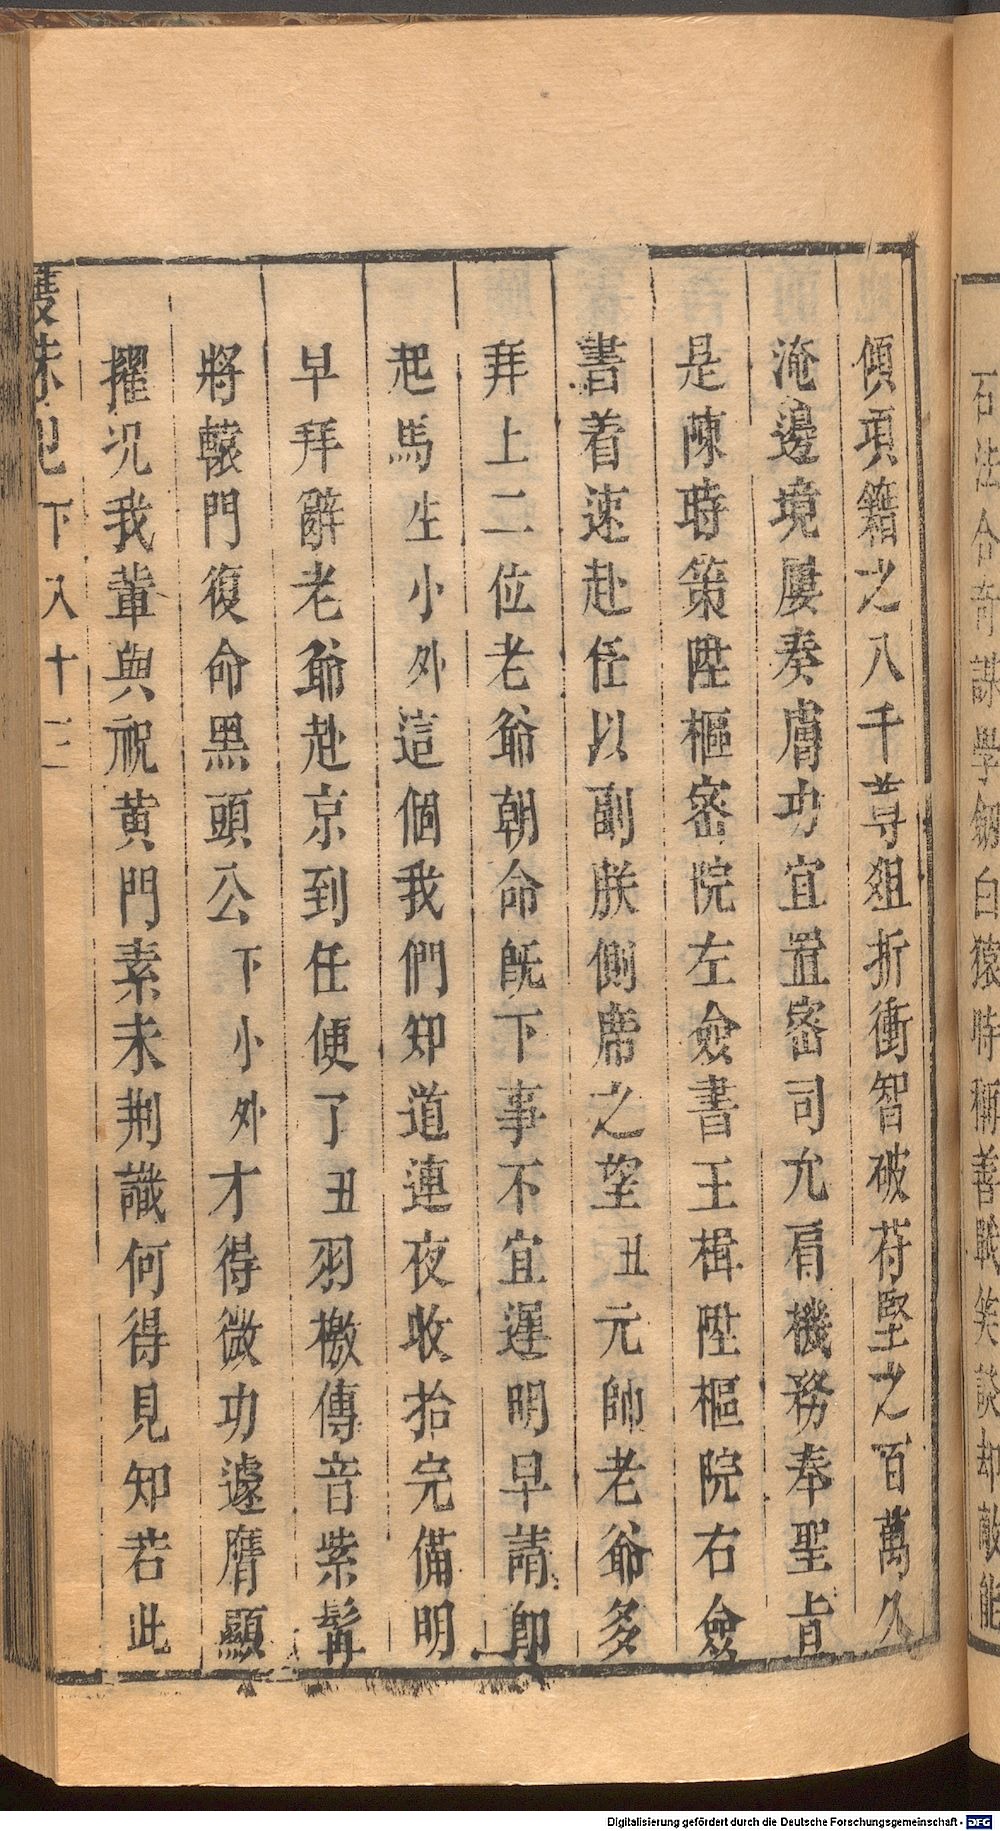 石法合奇謀學劒白猿時稱善戰笑談却敵能
傾項籍之八千尊爼折衝智破苻堅之百萬久
淹邊境屢奏膚功宜置密司允肩機務奉聖㫖
是陳時策陞樞密院左僉書王楫陞樞院右僉
書着速赴任以副朕側席之望丑元帥老爺多
拜上二位老爺朝命既下事不宜遲明早請即
起馬生小外這個我們知道連夜收拾完備明
早拜辭老爺赴京到任便了丑羽檄傳音紫髯
將轅門復命黑頭公下小外才得微功遽膺顯
擢况我輩與祝黄門素未荆識何得見知若此
雙珠記下八十二
Digitalisierung gefördert durch die Deutsche Forschungsgemeinschaft - DFG